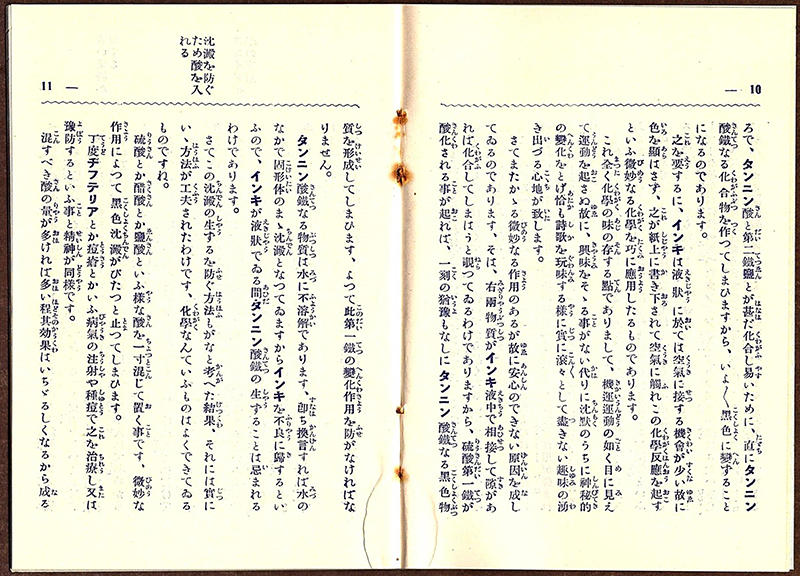 10
ろで、タンニン酸と第二鐵鹽とが甚だ化合し易いために、直にタンニン
酸鐵なる化合物を作つてしまひますから、いよ〳〵黑色に變ずること
になるのであります。
之を要するに、インキは液狀に於ては空氣に接する機會が少い故に
色を顯はさず、之が紙上に書き下されて空氣に觸れこの化學反應を起す
といふ微妙なる化學を巧に應用したるものであります。
これ全く化學の味の存する點でありまして、機運運動の如く目に見え
て運動を起さぬ故に、興味をそゝる事がない代りに沈默のうちに神秘的
の變化をとげ恰も詩歌を玩味する樣に實に滾々として盡きない趣味の湧
き出づる心地が致します。
さてまたかゝる微妙なる作用のあるが故に安心のできない原因を成し
てゐるのであります、そは、右兩物質がインキ液中で相接して隙があ
れば化合してしまはうと覗つてゐるわけでありますから、硫酸第一鐵が
酸化される事が起れば、一刻の猶豫もなしにタンニン酸鐵なる黑色物
11
沈澱を防ぐ
ため酸を入
れる
質を形成してしまひます、よつて此第一鐵の變化作用を防がなければな
りません。
タンニン酸鐵なる物質は水に不溶解であります、卽ち換言すれば水の
なかで固形体のまゝ沈澱となつてゐますからインキを不良に歸するとい
ふので、インキが液狀でゐる間タンニン酸鐵の生ずることは忌まれる
わけであります。
さてこの沈澱の生ずるを防ぐ方法もがなと考へた結果、それには實に
い、方法が工夫されたわけです、化學なんていふものはよくできてゐる
ものですね。
硫酸とか醋酸とか鹽酸といふ樣な酸を一寸混じて置く事です、微妙な
作用によつて黑色沈澱がぴたつと止つてしまひます。
丁度ヂフテリアとか痘瘡とかいふ病氣の注射や種痘で之を治療し又は
豫防するといふ事と精神が同樣です。
混ずべき酸の量が多ければ多い程其効果はいちゞるしくなるから成る